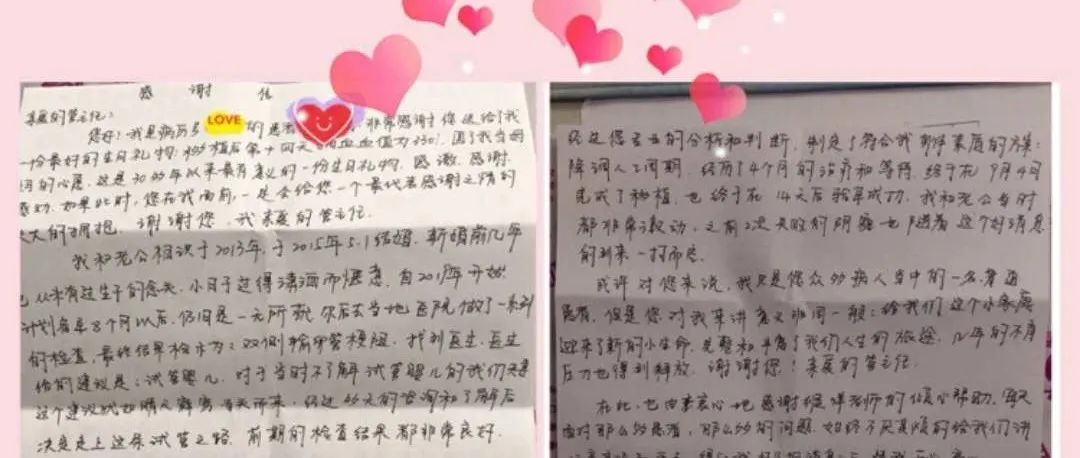 感谢信
亲爱的管主任:
您好!我是病历号LOVE的患者 非常感谢您送给了我
一份最好的生日礼物:移植后第十四天 血值为330!圆了我当妈
妈的心愿,这是30多年以来最有意义的一份生日礼物,感激、感谢、
感动.如果此时,您在我面前,一定会给您一个最代表感谢之情的
大大的拥抱,谢谢您,我亲爱的管主任.
我和老公相识于2013年,于2015年5.1结婚.新婚前几年
从未有过生子的念头,小日子过得清海而惬意,自2019年开始
计划备孕8个月以后,仍旧是一无所获,尔后去当地医院做了一系列
的检查,最终结果检示为:双侧输卵管梗阻,找到医生,医生
给的建议是:试管婴儿,对于当时不了解试管婴儿的我们来
这个建议就如晴天霹雳当头而来,经过多天的咨询和了解后
决定走上这条试管之路.前期的检查结果都非常良好.
经过您专业的分析和判断,制定了符合我那样素质的方案:
降调人工周期,经历了4个月的治疗和等待,终于在9月4日
完成了移植,也终于在14天后验孕成功,我和老公当时
都非常激动,之前2次失败的阴霾也随着这个好消息
的到来一扫而空.
或许对您来说,我只是您众多病人当中的一名普通
患者,但是您对我来讲意义非同一般:给我们这个小家庭
迎来了新的小生命,完整和丰富了我们人生的旅途,几年的不孕
压力也得到释放.谢谢您!亲爱的管主任.
在此,也由衷衷心地感谢健 老师的倾心帮助,每天
面对那么多患者,那么多的问题,始终不厌其烦的给我们讲